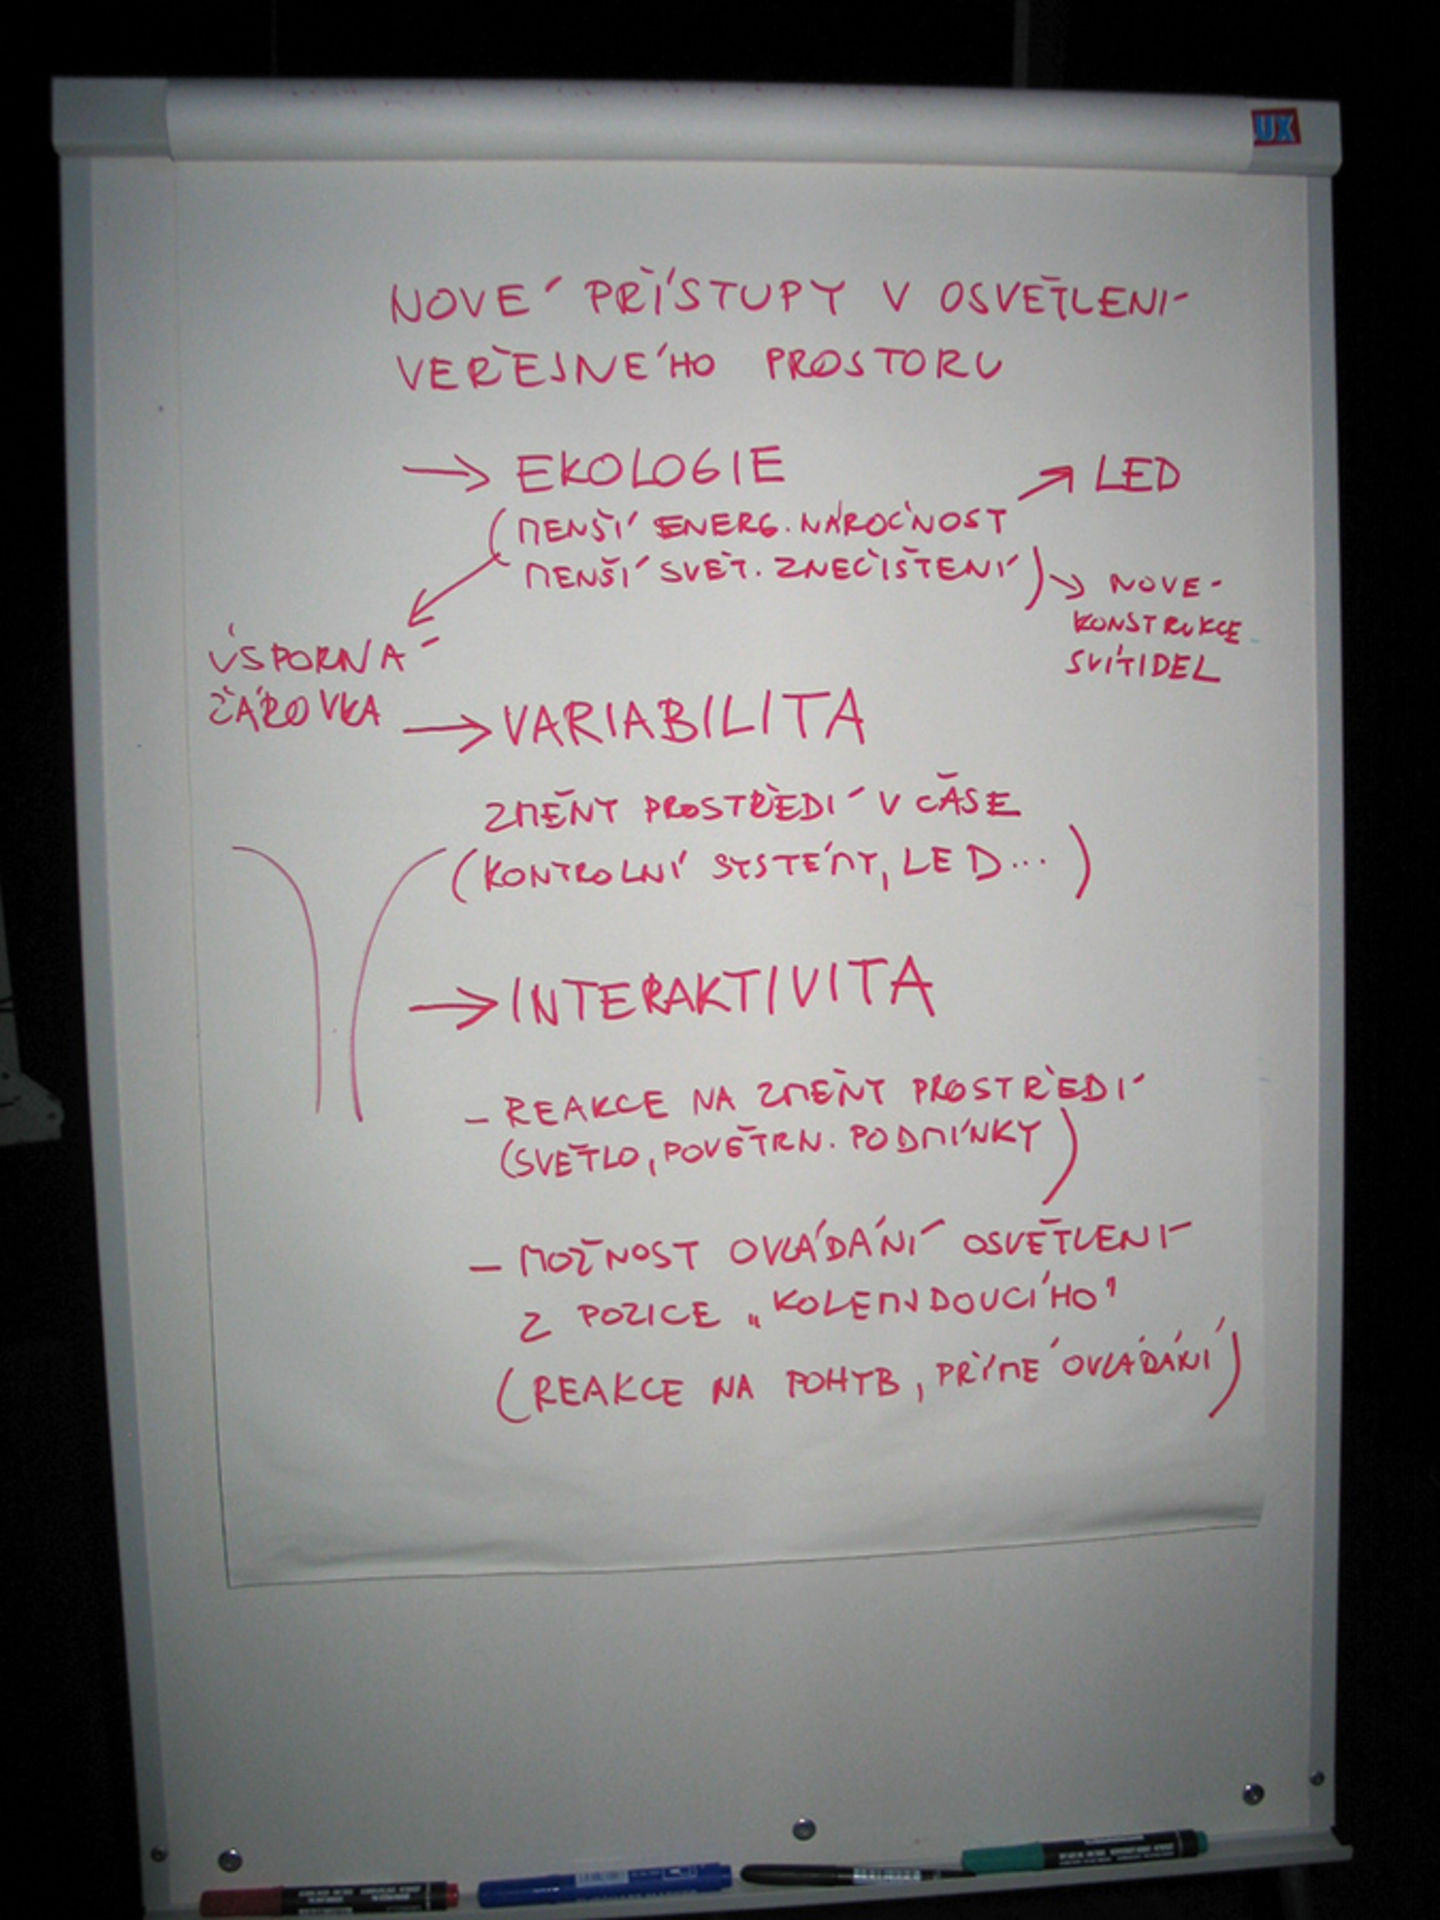 UX
NOVÉ PŘÍSTUPY V OSVĚTLENÍ
VEŘEJNÉHO PROSTORU
→ EKOLOGIE
→ LED
(MENŠÍ ENERG. NÁROČNOST
MENŠÍ SVĚT. ZNEČIŠTĚNÍ)
→ NOVÉ
KONSTRUKCE
SVÍTIDEL
ÚSPORNÁ
ŽÁROVKA
→ VARIABILITA
ZMĚNY PROSTŘEDÍ V ČASE
(KONTROLNÍ SYSTÉMY, LED...)
→ INTERAKTIVITA
- REAKCE NA ZMĚNY PROSTŘEDÍ
(SVĚTLO, POVĚTRN. PODMÍNKY)
- MOŽNOST OVLÁDÁNÍ OSVĚTLENÍ
Z POZICE „KOLEMJDOUCÍHO"
(REAKCE NA POHYB, PŘÍMÉ OVLÁDÁNÍ)